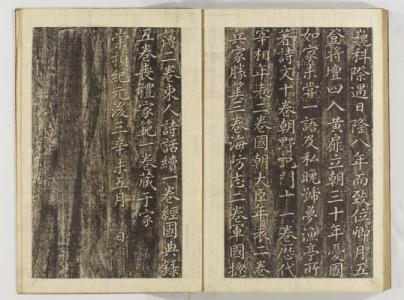 巍科除遇日隆八年而致位卿月五
登將壇四入黃扉立朝三十年憂國
如家未嘗一語及私晚號夢漁亭所
著詩文十卷朝野門十一卷歷代
宰相年表二卷國朝大臣年表二卷
兵家勝筭三卷海防志二卷軍國摠
簿二卷東人詩話續一卷經國典錄
五卷喪禮家範一卷藏于家
崇禎紀元後三辛未五月 日